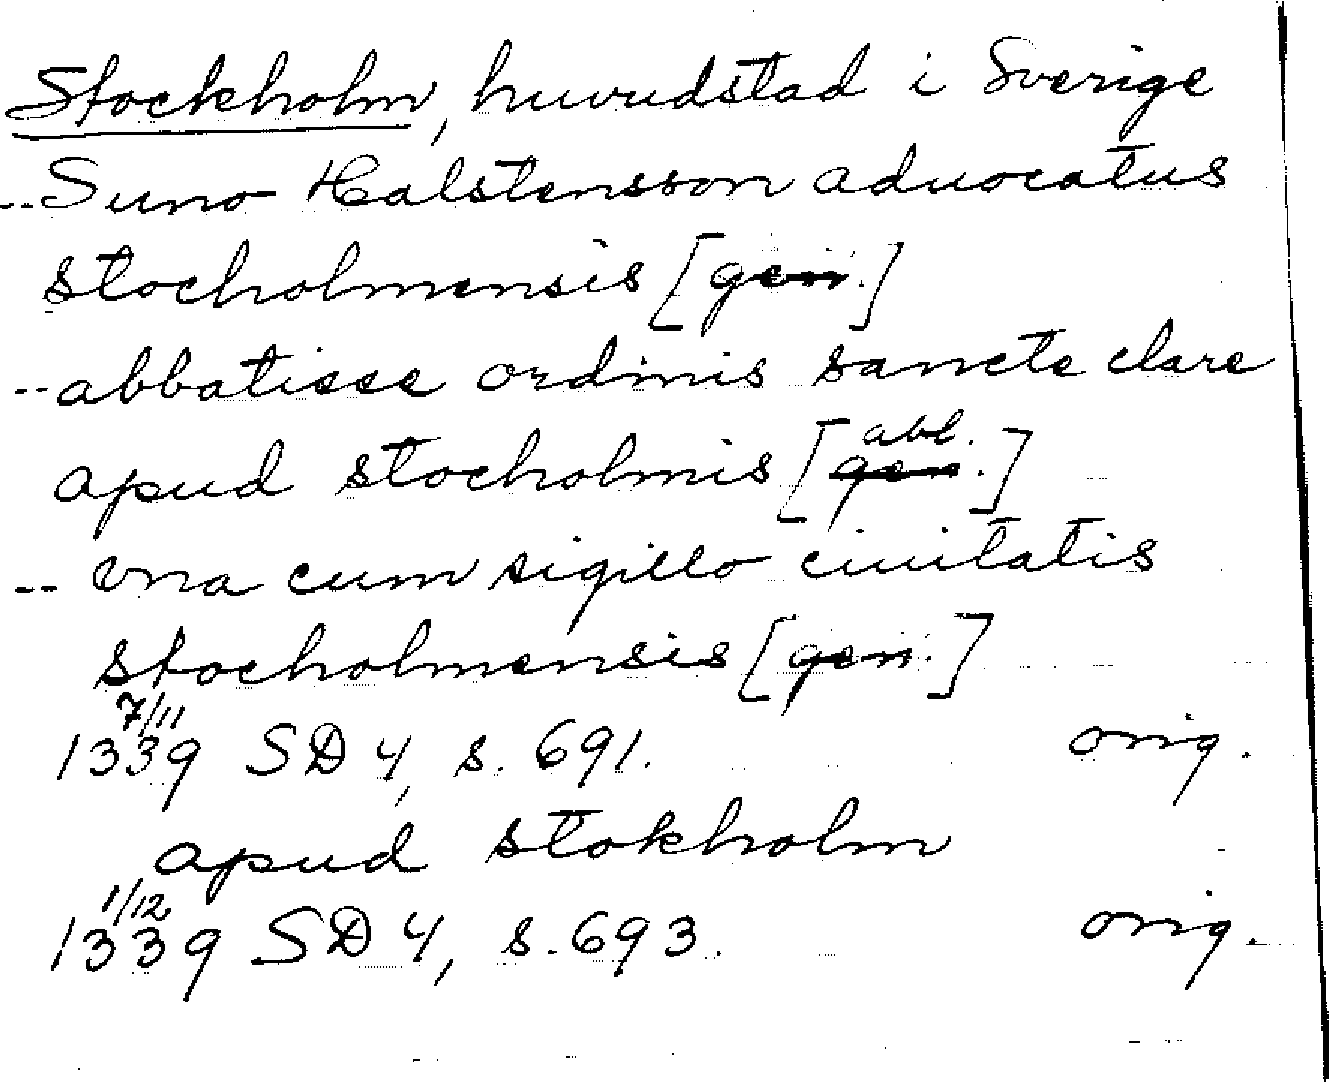 Stockholm, huvudstad i Sverige
-- Suno Halstensson aduocatus
stocholmensis [gen.]
-- abbatisse ordinis sancte clare
apud stocholmis [gen. abl.]
-- vna cum sigillo ciuitatis
stocholmensis [gen.]
1339 7/11 SD 4, s. 691. orig.
apud stokholm
1339 1/12 SD 4, s. 693. orig.